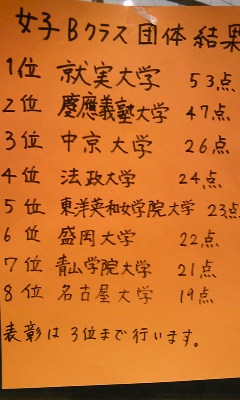 女子Bクラス団体結果
1位 就実大学 53点
2位 慶應義塾大学 47点
3位 中京大学 26点
4位 法政大学 24点
5位 東洋英和女学院大学 23点
6位 盛岡大学 22点
7位 青山学院大学 21点
8位 名古屋大学 19点
表彰は3位まで行います。